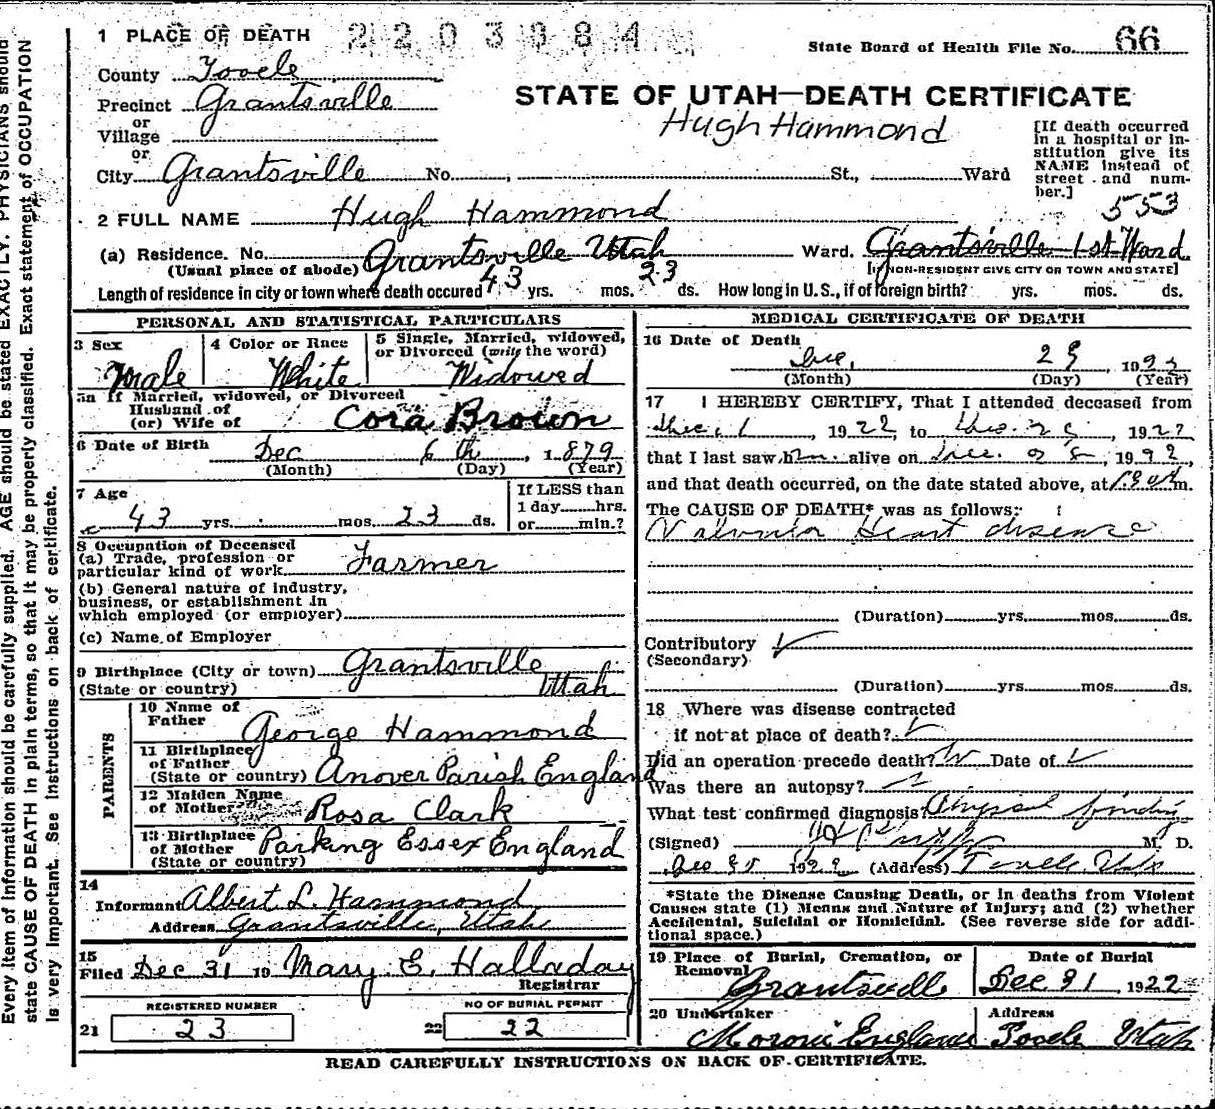 1 PLACE OF DEATH
2203084
State Board of Health File No. 66
County Tooele
Precinct Grantsville
or
Village
or
City Grantsville No. , St., Ward
STATE OF UTAH—DEATH CERTIFICATE
Hugh Hammond
[If death occurred
in a hospital or in-
stitution give its
NAME instead of
street and num-
ber.]
553
2 FULL NAME Hugh Hammond
(a) Residence. No. Grantsville Utah Ward. Grantsville 1st Ward
(Usual place of abode) [If NON-RESIDENT GIVE CITY OR TOWN AND STATE]
Length of residence in city or town where death occured 43 yrs. mos. 23 ds. How long in U. S., if of foreign birth? yrs. mos. ds.
PERSONAL AND STATISTICAL PARTICULARS
3 Sex
Male
4 Color or Race
White
5 Single, Married, widowed,
or Divorced (write the word)
Widowed
5a If Married, widowed, or Divorced
Husband of
(or) Wife of Cora Brown
6 Date of Birth Dec 6th, 1879
(Month) (Day) (Year)
7 Age
43 yrs. mos. 23 ds.
If LESS than
1 day hrs.
or min.?
8 Occupation of Deceased
(a) Trade, profession or
particular kind of work Farmer
(b) General nature of industry,
business, or establishment in
which employed (or employer)
(c) Name of Employer
9 Birthplace (City or town) Grantsville
(State or country) Utah
PARENTS
10 Name of
Father George Hammond
11 Birthplace
of Father
(State or country) Anover Parish England
12 Maiden Name
of Mother Rosa Clark
13 Birthplace
of Mother Parking Essex England
(State or country)
14
Informant Albert L. Hammond
Address Grantsville, Utah
15
Filed Dec 31 19 Mary E. Halladay
Registrar
REGISTERED NUMBER
21 23
NO OF BURIAL PERMIT
22 22
MEDICAL CERTIFICATE OF DEATH
16 Date of Death
Dec. 29, 192
(Month) (Day) (Year)
17 I HEREBY CERTIFY, That I attended deceased from
Dec. 1, 1922, to Dec. , 192
that I last saw h alive on Dec. 28, 1922,
and that death occurred, on the date stated above, at m.
The CAUSE OF DEATH* was as follows:
Valvular Heart disease
(Duration) yrs. mos. ds.
Contributory
(Secondary)
(Duration) yrs. mos. ds.
18 Where was disease contracted
if not at place of death?
Did an operation precede death? Date of
Was there an autopsy?
What test confirmed diagnosis? Physical findings
(Signed) M. D.
Dec 192 (Address) Tooele, Utah
*State the Disease Causing Death, or in deaths from Violent
Causes state (1) Means and Nature of Injury; and (2) whether
Accidental, Suicidal or Homicidal. (See reverse side for addi-
tional space.)
19 Place of Burial, Cremation, or
Removal
Grantsville
Date of Burial
Dec 31, 1922
20 Undertaker
Moroni England
Address
Tooele Utah
READ CAREFULLY INSTRUCTIONS ON BACK OF CERTIFICATE.
Every item of information should be carefully supplied. AGE should be stated EXACTLY. PHYSICIANS should
state CAUSE OF DEATH in plain terms, so that it may be properly classified. Exact statement of OCCUPATION
is very important. See instructions on back of certificate.